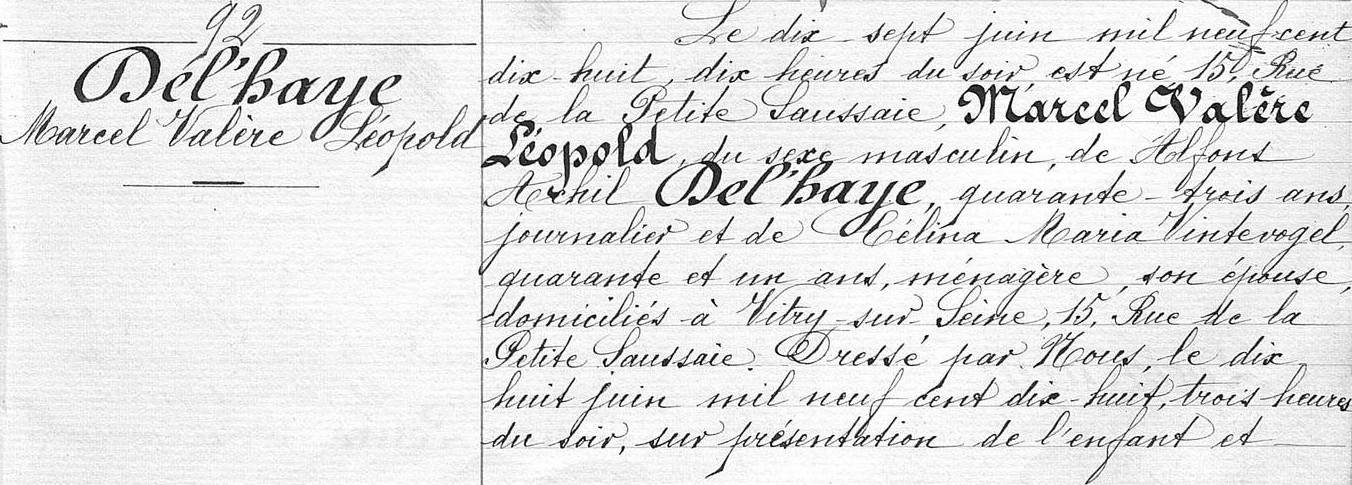 92
Del'haye
Marcel Valère Léopold
Le dix sept juin mil neuf cent
dix huit, dix heures du soir est né, 15, Rue
de la Petite Saussaie, Marcel Valère
Léopold, du sexe masculin, de Alfons
Achil Del'haye, quarante-trois ans,
journalier et de Célina Maria Vintevogel,
quarante et un ans, ménagère, son épouse,
domiciliés à Vitry-sur-Seine, 15, Rue de la
Petite Saussaie. Dressé par Nous, le dix
huit juin mil neuf cent dix-huit, trois heures
du soir, sur présentation de l'enfant et